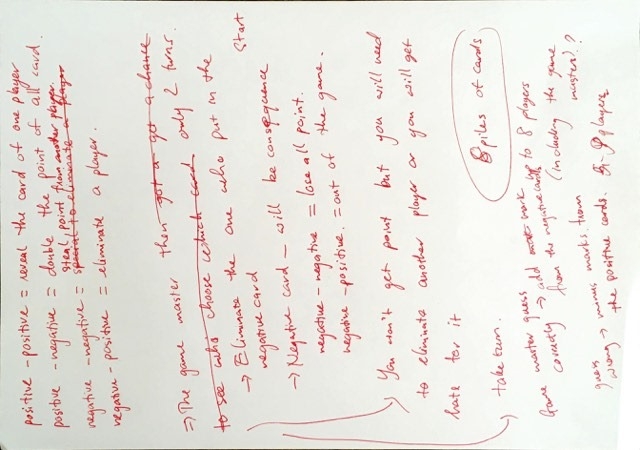 positive - positive = reveal the card of one player
positive - negative = double the point of all card.
steal point from another player.
negative - negative = special to eliminate a player
negative - positive = eliminate a player.
⇒ The game master then got a get a chance
to see who choose which card only 2 turns.
→ Eliminate the one who put in the
negative card
Start
→ Negative card - will be consequence
negative - negative = lose all point.
negative - positive. = out of the game.
You won't get point but you will need
to eliminate another player or you will get
hate for it
take turn.
8 piles of cards
Game master guess
correctly → add mark up to 8 players
from the negative cards (including the game
master)?
guess
wrong → minus marks from
the positive cards. 5-9 players